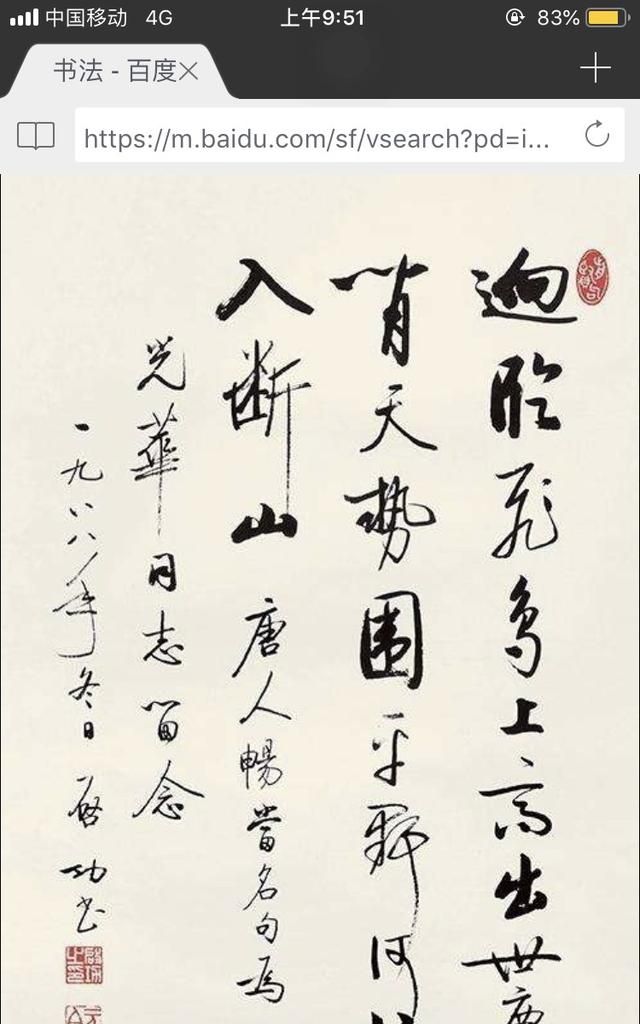 中国移动 4G 上午9:51 83%
书法 - 百度
https://m.baidu.com/sf/vsearch?pd=i...
迥臨飛鳥上高出世
間天勢围平野河
入断山 唐人暢當名句为
光華同志留念
一九八八年冬日 启功书